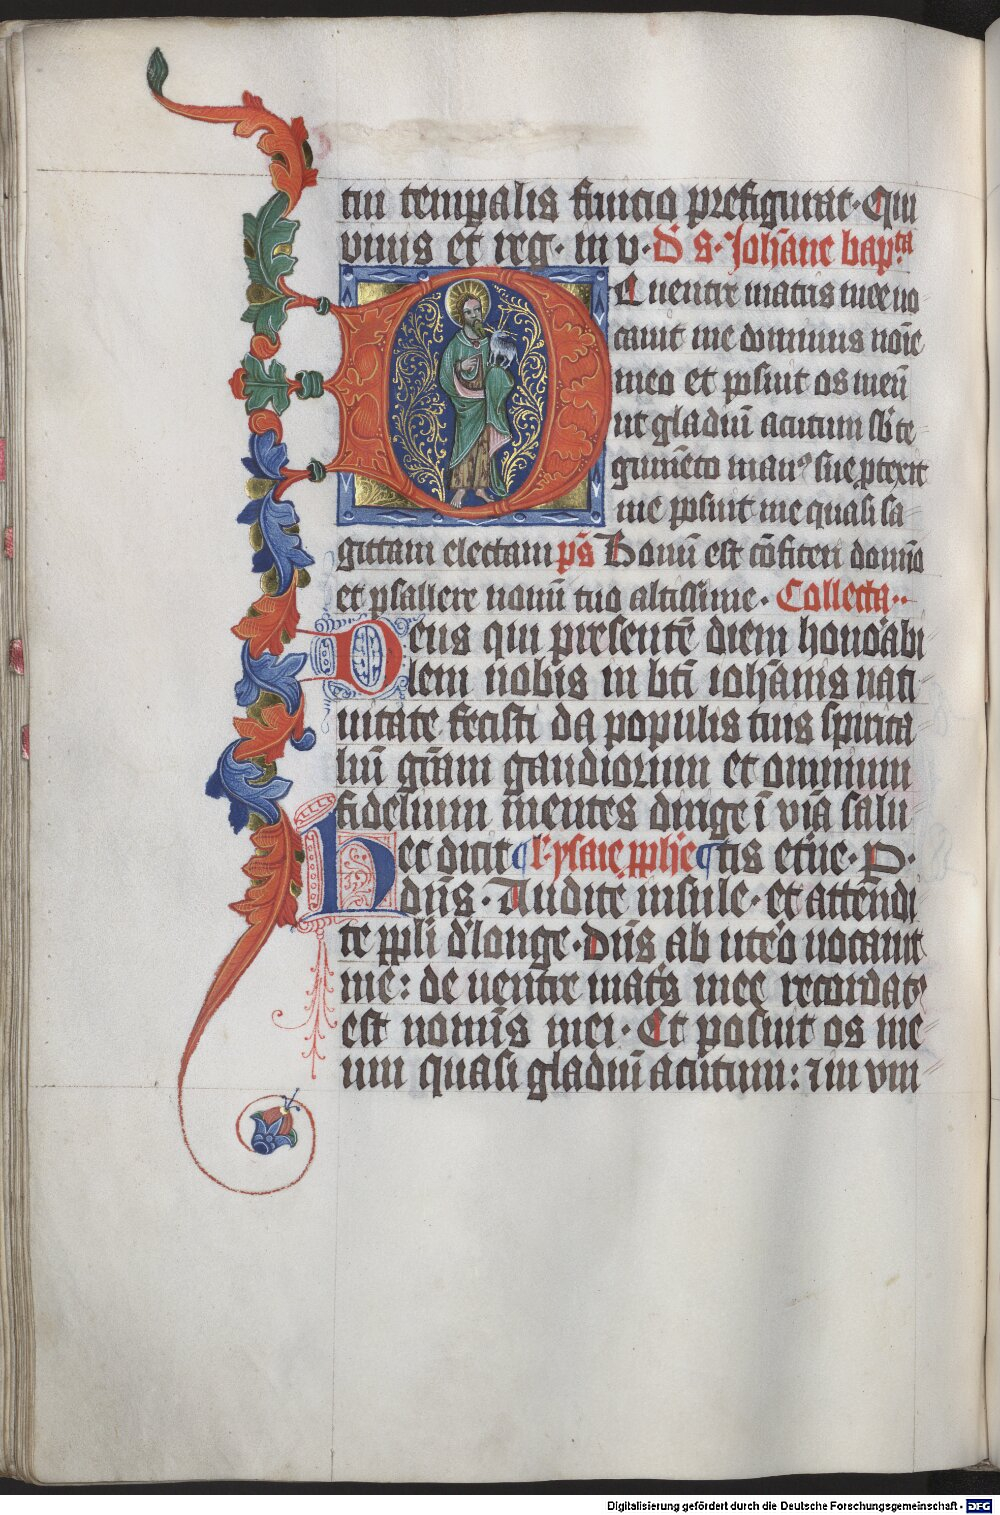 tui temp̱alis sumcio prefigurat · Qui
viuis et reg · in v · D̄ s · Joh̄āne bap̱ᵗᵃ
De uentre matris mee uo
cauit me dominus noīe
meo et posuit os meū
ut gladiū acutum sb̄ te
gumēto manꝰ sue ꝓtexit
me posuit me quasi sa
gittam electam p̄s Bonū est cōfiteri domīo
et psallere nomī tuo altissime · Collecta ··
Deus qui presentē diem honorabi
lem nobis in bt̄i ioh̄ānis nati
uitate fecisti da populis tuis spirita
liū gr̄am gaudiorum et omnium
fidelium mentes dirige ī viā salu
tis et̄ne · P ·
Hec dicit l̄ · ysaie ꝓph̄e
dn̄s · Audite insule · et attendi
te pp̄li d̄ longe · Dn̄s ab utero uocauit
me : de uentre mat̄s mee recordatꝰ
est nomīs mei · Et posuit os me
um quasi gladiū acutum : in vm
Digitalisierung gefördert durch die Deutsche Forschungsgemeinschaft - DFG